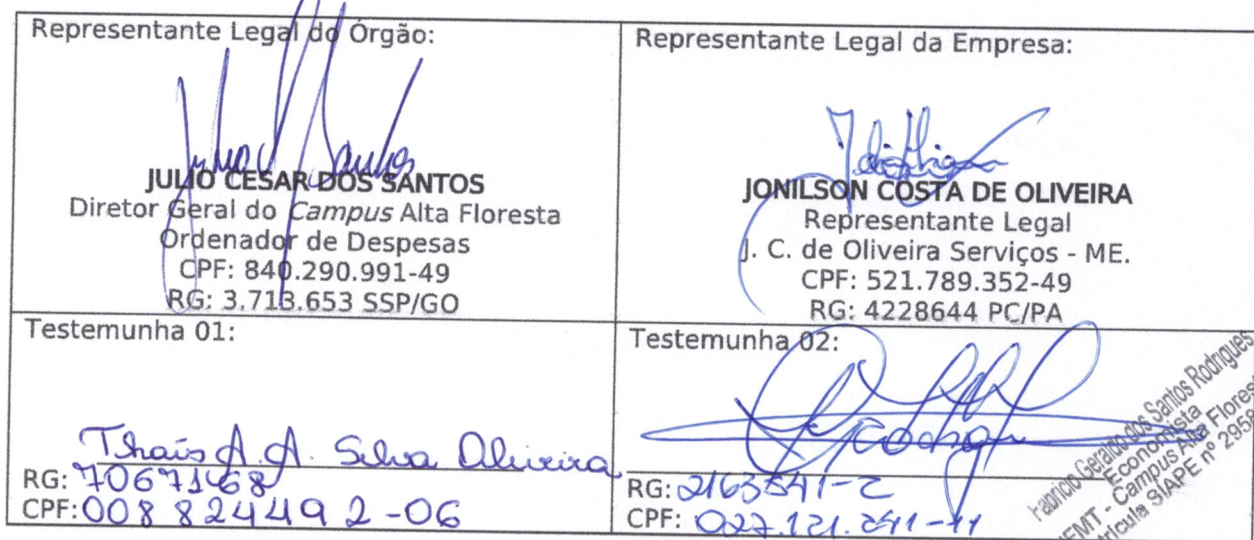 Representante Legal do Órgão:
JULIO CESAR DOS SANTOS
Diretor Geral do Campus Alta Floresta
Ordenador de Despesas
CPF: 840.290.991-49
RG: 3.713.653 SSP/GO
Representante Legal da Empresa:
JONILSON COSTA DE OLIVEIRA
Representante Legal
J. C. de Oliveira Serviços - ME.
CPF: 521.789.352-49
RG: 4228644 PC/PA
Testemunha 01:
Thaís A. A. Silva Oliveira
RG: 70671468
CPF: 008 824492-06
Testemunha 02:
RG: 2163541-2
CPF: 027.121.241-11
Fabricio Geraldo dos Santos Rodrigues
Economista
IFMT - Campus Alta Flores
SIAPE nº 2958